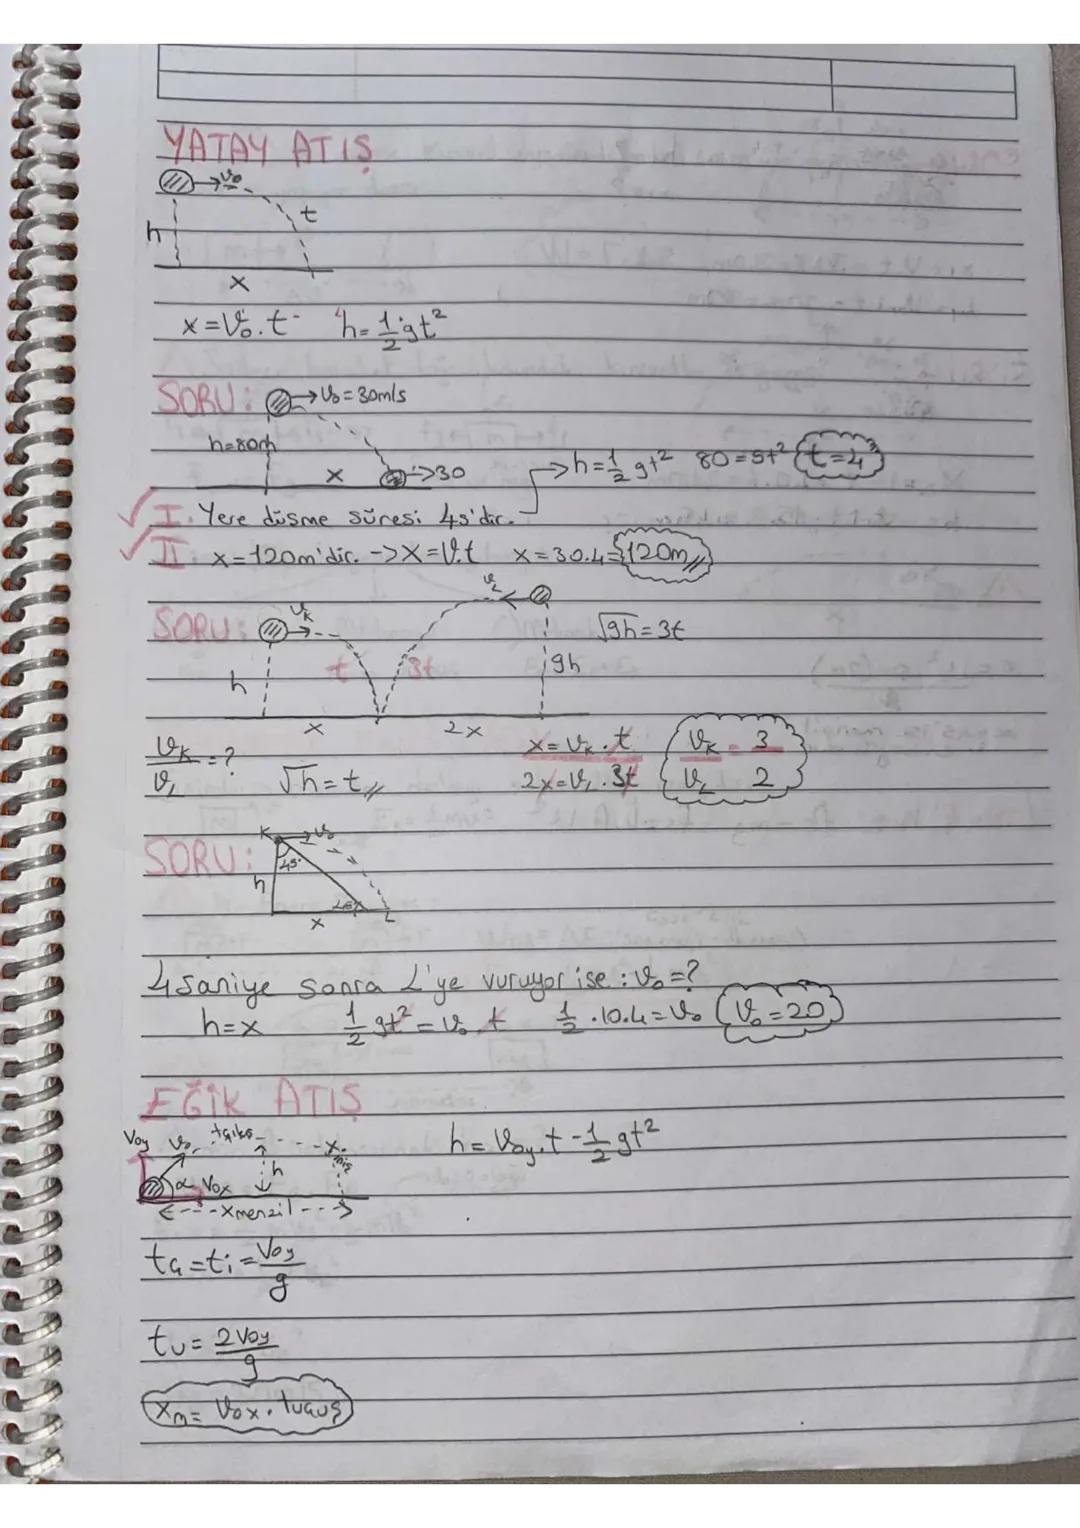 YATAY ATIŞ
V₀
t
h
x
x=V₀.t h=1/2 gt²
SORU: V₀=30m/s
h=80m
x →30 →h=1/2 gt² 80=5t² t=4
I. Yere düşme süresi 4s'dir.
II. x=120m'dir. ->x=V.t x=30.4=120m//
SORU: Vk VL √9h=3t
h t 3t 9h
x 2x
Vk/VL=? √h=t// x=Vk.t 2x=VL.3t Vk/VL=3/2
SORU: K V₀
45°
h
x L
4 saniye sonra L'ye vuruyor ise : V₀=?
h=x 1/2 gt²=V₀.t 1/2 .10.4=V₀ V₀=20
EĞİK ATIŞ
Voy V₀ tçıkış h=Voy.t-1/2 gt²
α Vox h
Xmenzil
tç=ti=Voy/g
tu=2Voy/g
Xm=Vox.tuçuş